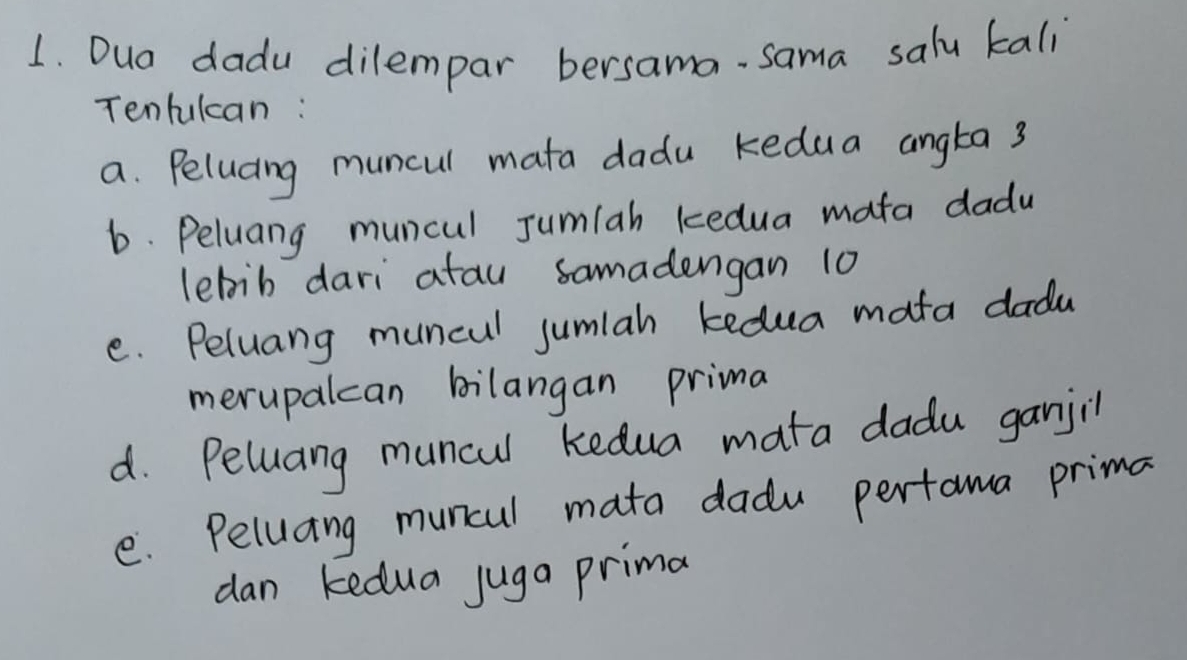 1. Dua dadu dilempar bersama-sama satu kali
Tentukan :
a. Peluang muncul mata dadu kedua angka 3
b. Peluang muncul Jumlah kedua mata dadu
lebih dari atau samadengan 10
c. Peluang muncul jumlah kedua mata dadu
merupakan bilangan prima
d. Peluang muncul kedua mata dadu ganjil
e. Peluang muncul mata dadu pertama prima
dan kedua juga prima